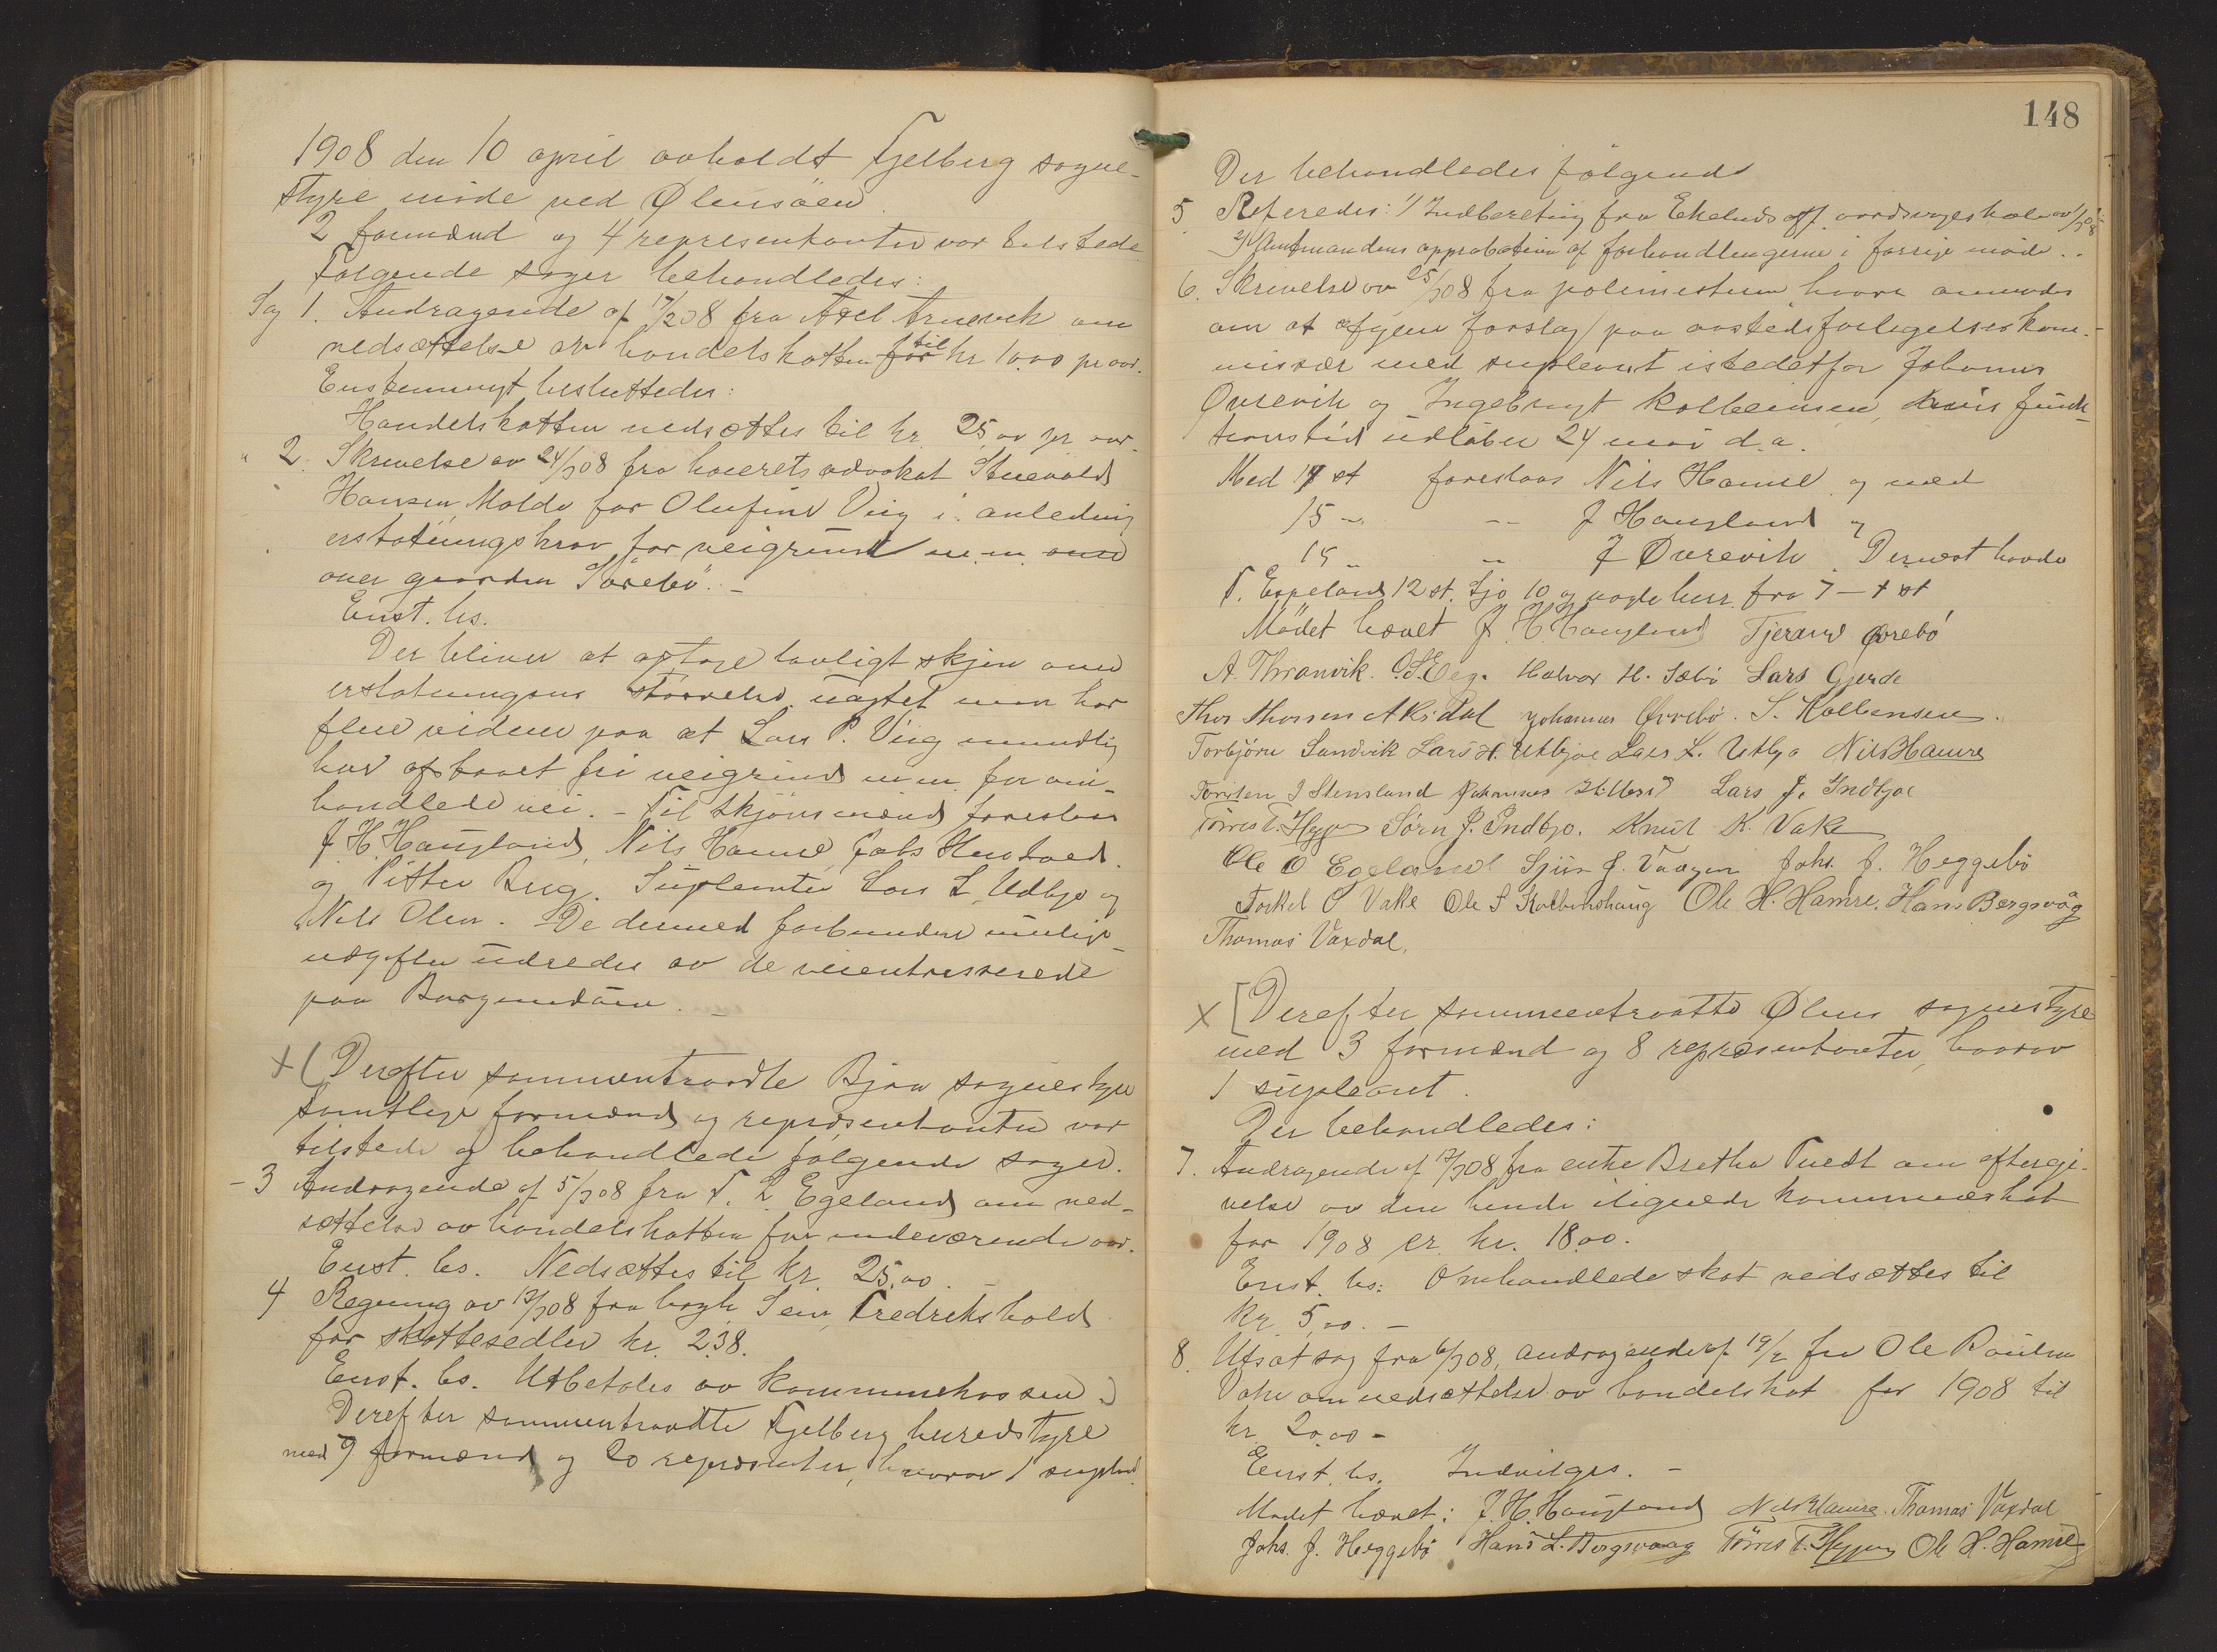 1908 den 10 april avholdt Fjelberg sogne-
styre möde ved Ølensöen.
2 formænd og 4 representanter var tilstede
Følgende sager behandledes:
Sag 1. Andragende af 17/2 08 fra Axel Arnevik om
nedsættelse av handelskatten for til kr 10.00 pr aar.
Enstemmigt besluttedes:
Handelskatten nedsættes til kr. 25,00 pr aar.
2. Skrivelse av 24/3 08 fra høierets advokat Stuevold
Hansen, Molde for Olufine Vig i anledning
erstatningskrav for veigrund m.m.
over gaarden Sörebö. -
Enst. bs.
Der bliver at optage lovligt skjön over
erstatningens störrelse uagtet man har
flere vidner paa at Lars P. Vig mundtlig
har afstaaet fri veigrund m.m. for om-
handlede vei. - Til skjönsmænd foreslaaes
J. H. Haugland, Nils Hamre,
og Petter Berg. Suplanter Lars L. Udbjo og
Nils Olen. De dermed forbundne mulige
udgifter udredes av de veientresserede
paa
+ ( Derefter sammentraadte Bjoa sognestyre
samtlige formænd og repræsentanter var
tilstede og behandlede følgende sager.
- 3 Andragende af 5/3 08 fra T. L. Egeland om ned-
sættelse av handelskatten for indeværende aar.
Enst. bs. Nedsættes til kr. 25,00. -
4 Regning av 13/3 08 fra bogh. Sem, Fredrikshald
for skattesedler kr. 2.38.
Enst. bs. Utbetales av kommunekassen )
Derefter sammentraadte Fjelberg herredstyre
med 9 formænd og 20 repræsenter, hvorav 1 suplent.
148
Der behandledes følgende
5 Referedes: 1/ Indberetning fra Ekelunds off. vordsvageskole av 1/3 08
2/ Amtmandens approbation af forhandlingerne i forrige møde..
6. Skrivelse av 25/3 08 fra polimesteren hvori anmodes
om at afgive forslag paa aastedsforligelseskom-
missær med supleant istedetfor Johannes
Øvrevik og Ingebrigt Kolbeinsen, hvis funk-
tionstid udløber 24 mai d.a.
Med 17 st foreslaas Nils Hamre og med
15 - -- J Haugland og
15 - -- J Øvrevik. Dernest havde
T. Espeland 12 st. Sjo 10 og nogle herr. fra 7 - 1 st
Mödet hævet J. H. Haugland Tjerand Øvrebö
A. Thranvik. O.S.Eeg. Halvor H. Sæbö Lars Gjerde
Thor Thorsen Aksdal Johannes Øvrebö. S. Kolbensen.
Torbjörn Sandvik Lars H. Utbjoe Lars L. Utbjo Nils Hamre
Torsten J Stensland Johannes Lars J. Indbjoe
Törres T. Hegge Sörn J. Indbjo. Knut K. Vake
Ole O Egeland Sjur J. Vaagen Johs. J. Heggebö
Torkel O Vake Ole S Kolbenshaug Ole H. Hamre. Hans Bergsvåg
Thomas Vaxdal.
x [ Derefter sammentraatte Ølens sognestyre
med 3 formænd og 8 repræsentanter, hvorav
1 supleant.
Der behandledes:
7. Andragende af 17/3 08 fra enke Bretha Tvedt om eftergi-
velse av den hende ilignede kommuneskat
for 1908 er kr. 18.00.
Enst. bs: Omhandlede skat nedsættes til
kr. 5,00. -
8. Utsat sag fra 6/3 08, andragende af 19/2 fra Ole Paulsen
Vake om nedsættelse av handelskat for 1908 til
kr 20.00 -
Enst. bs. Indvilges. -
Mødet hævet: J. H. Haugland Nils Hamre. Thomas Vaxdal
Johs. J. Heggebö Hans L. Bergsvaag Törres T. Hegge Ole H. Hamre